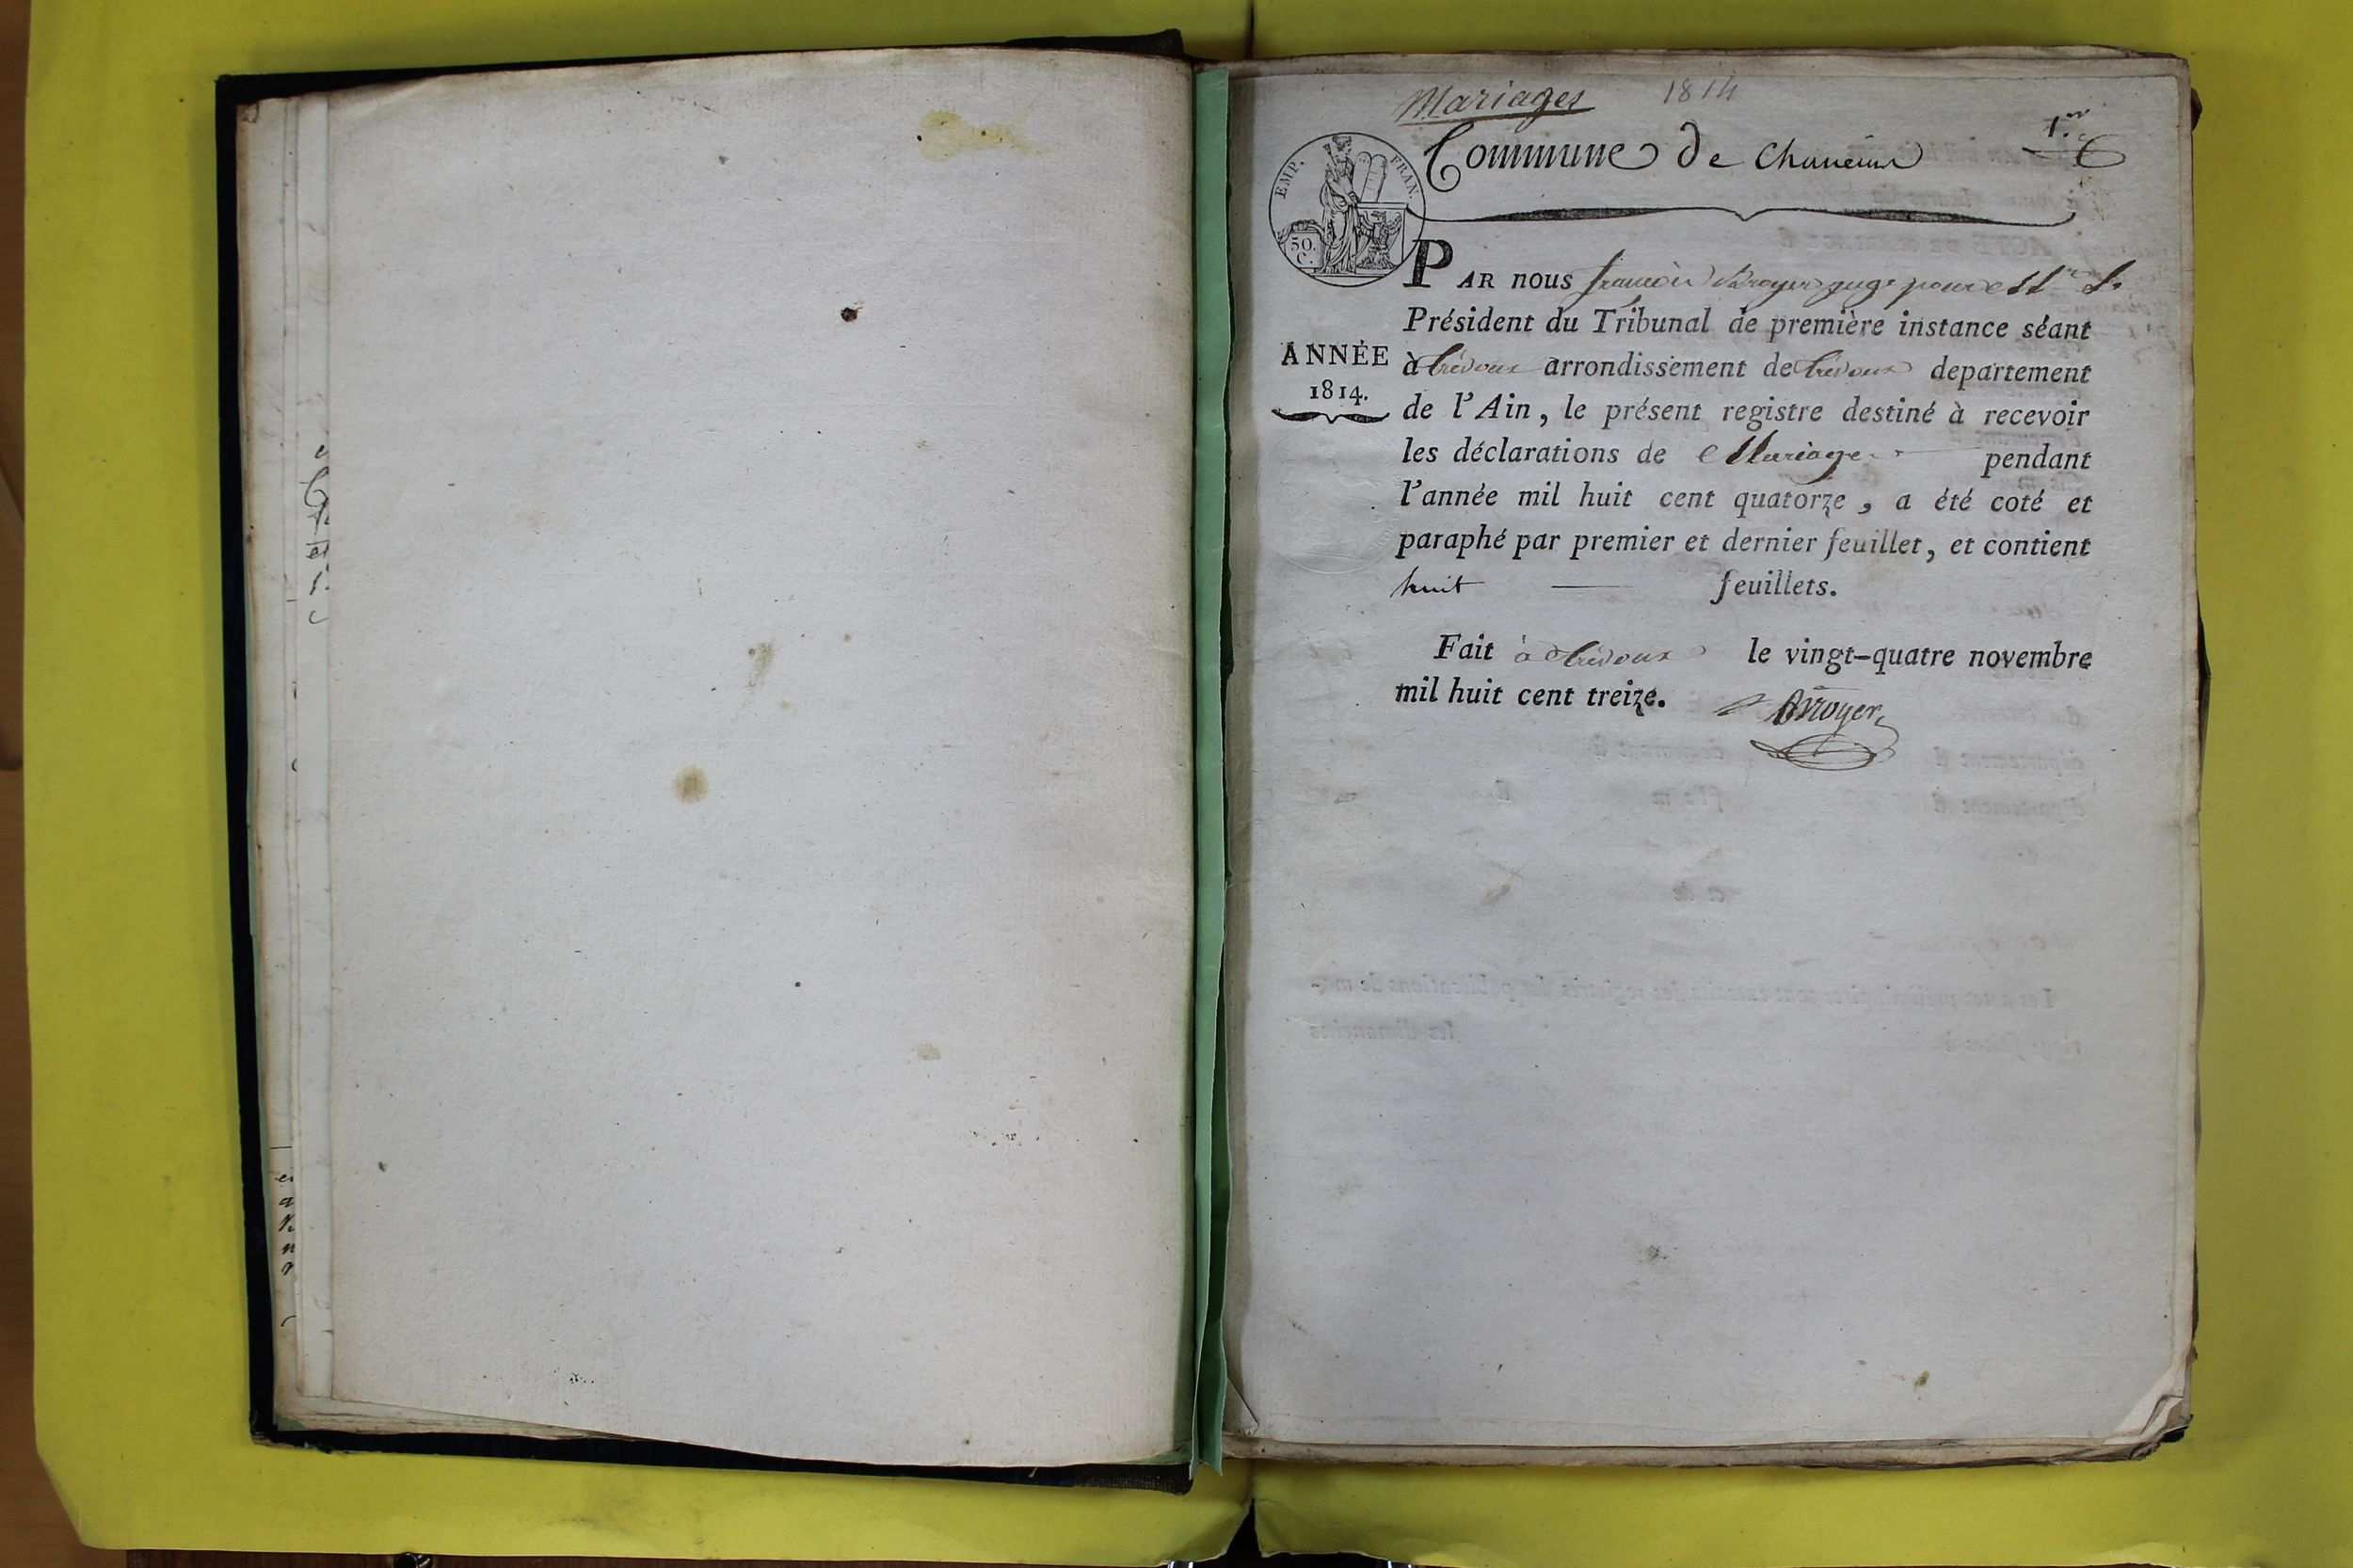 Mariages 1814
1.er
Commune de Chaneins
EMP. FRAN.
50.
C.
PAR nous françois Broyer juge pour Mr. le
Président du Tribunal de première instance séant
ANNÉE
1814.
à trévoux arrondissement de trévoux departement
de l'Ain, le présent registre destiné à recevoir
les déclarations de Mariages pendant
l'année mil huit cent quatorze, a été coté et
paraphé par premier et dernier feuillet, et contient
huit feuillets.
Fait à trévoux le vingt-quatre novembre
mil huit cent treize.
Broyer